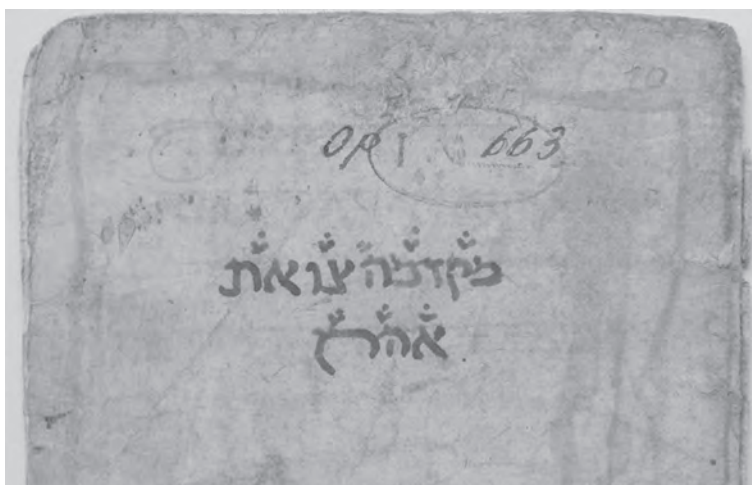 10
Op I 663
מקדמה צו את
אהרן